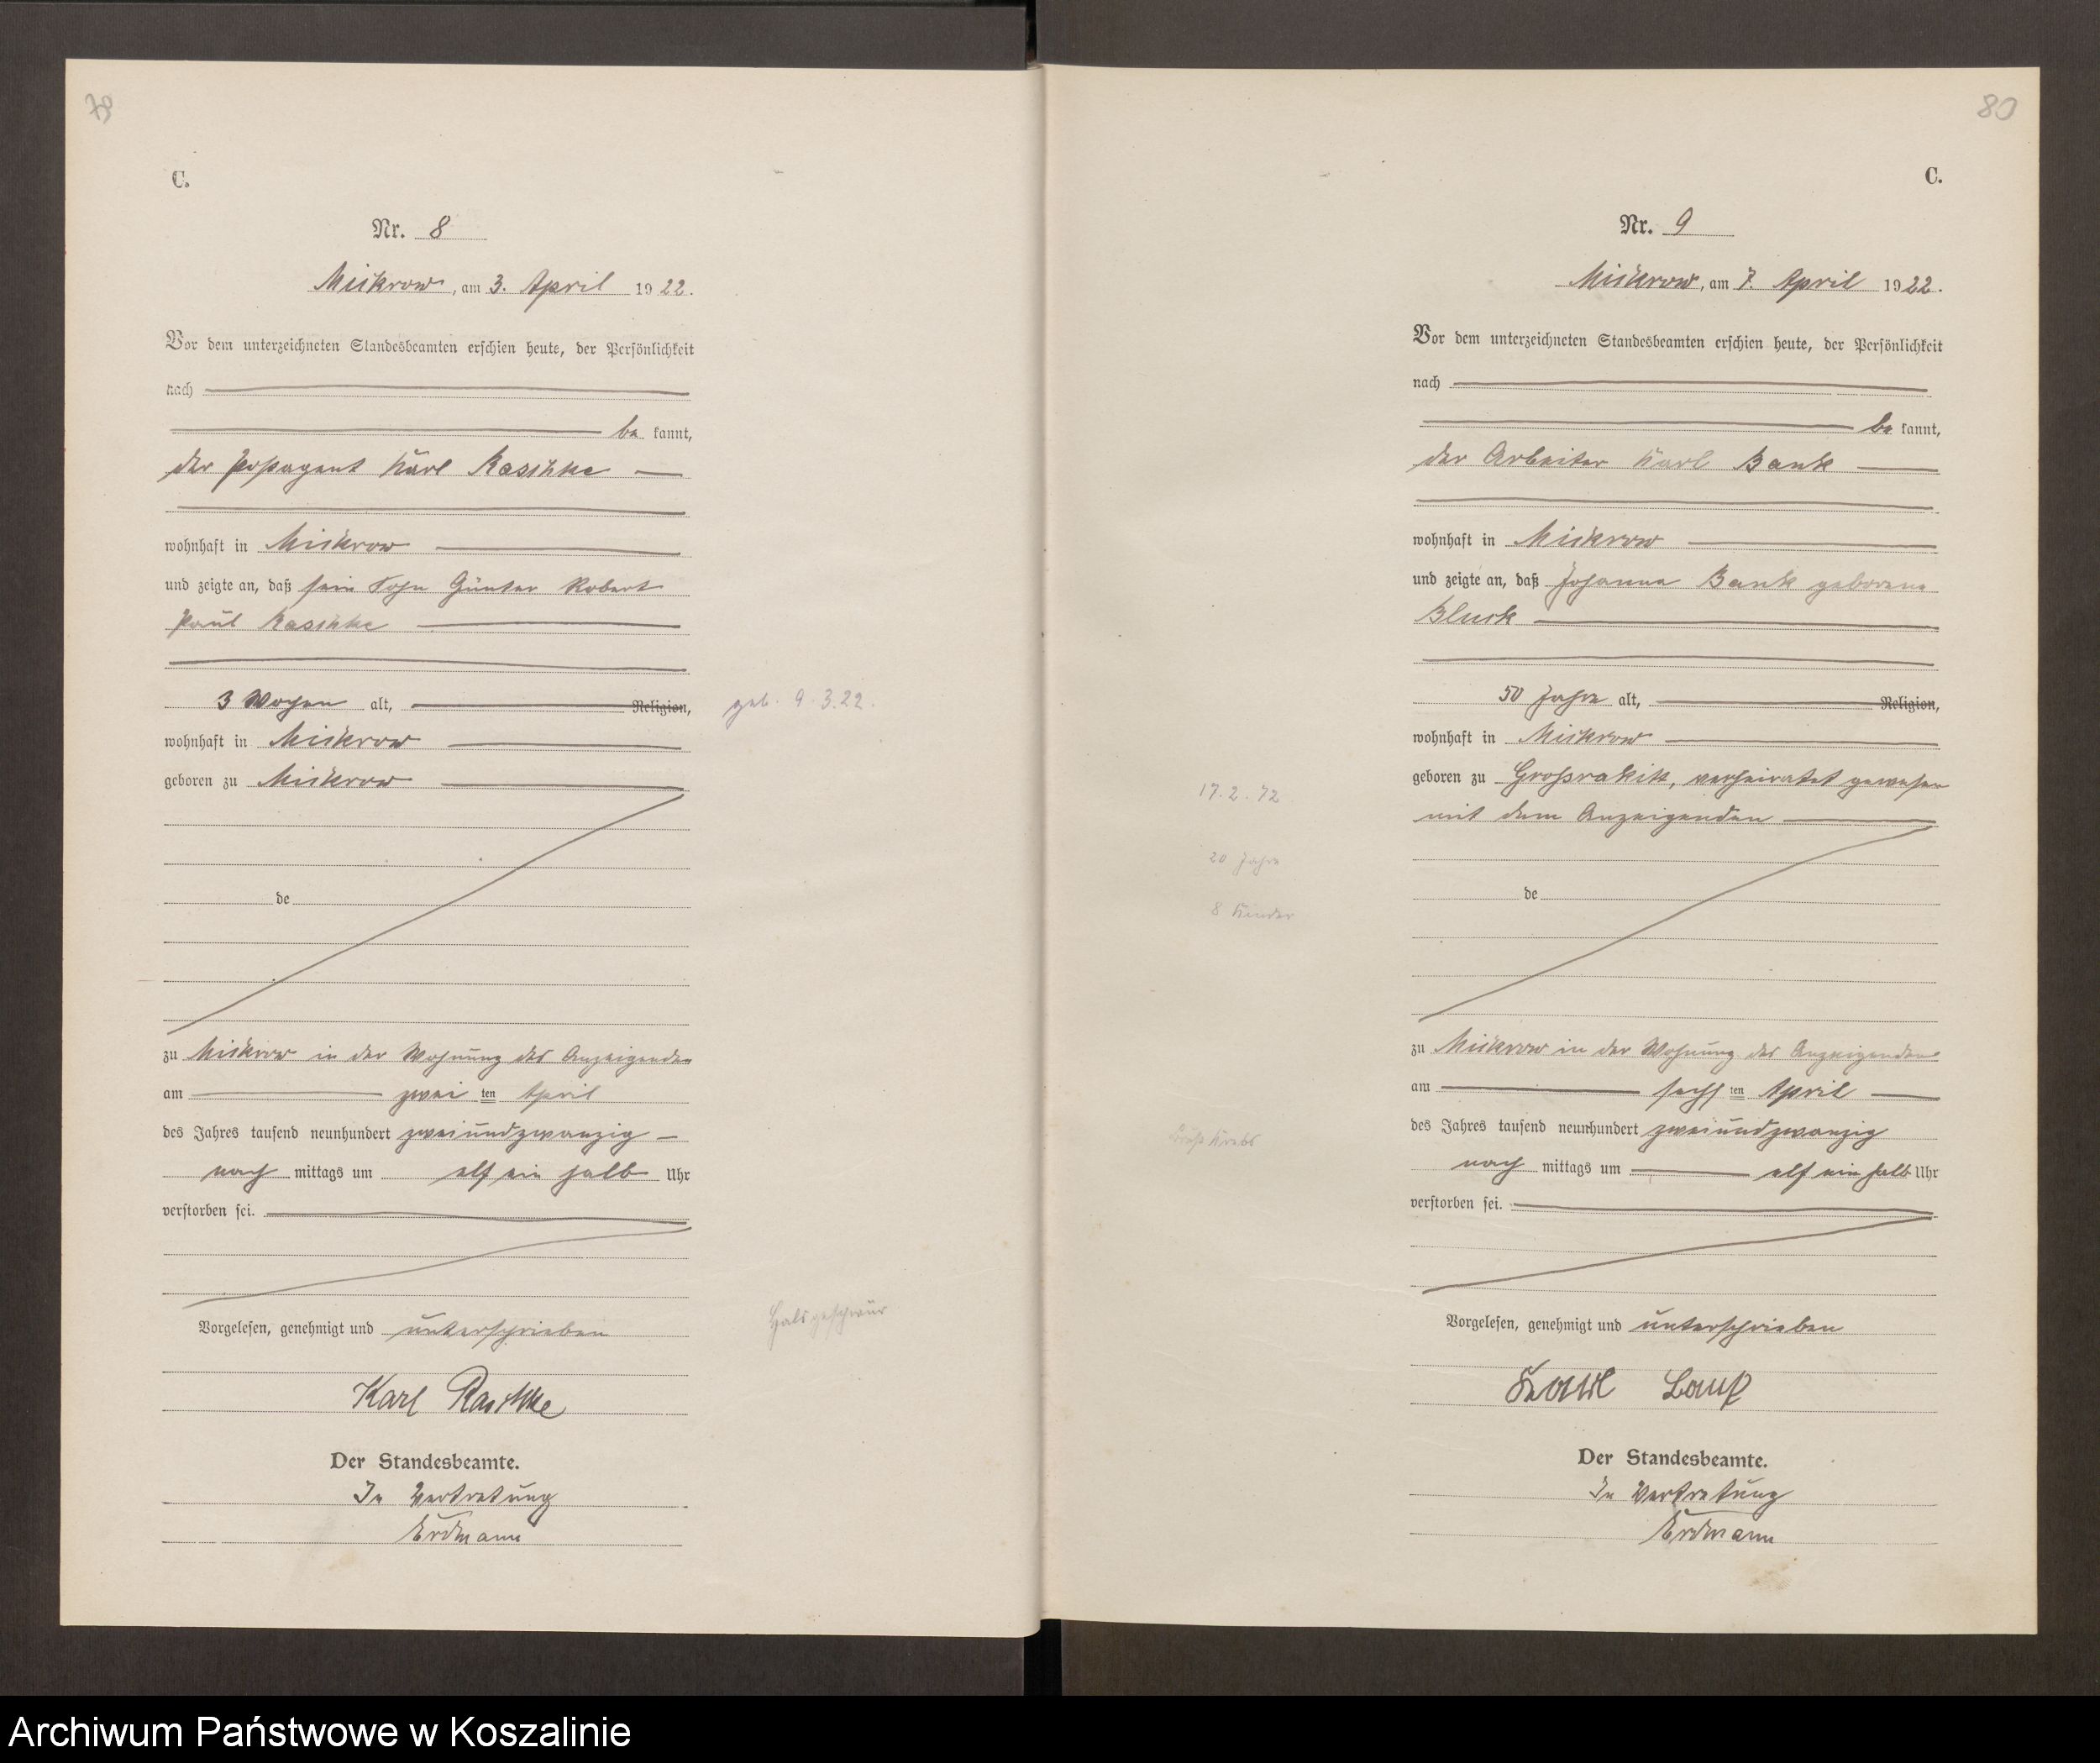 79
C.
Nr. 8
Mickrow, am 3. April 1922.
Vor dem unterzeichneten Standesbeamten erschien heute, der Persönlichkeit
nach
be kannt,
der Postagent Karl Raschke
wohnhaft in Mickrow
und zeigte an, daß sein Sohn Günter Robert
Paul Raschke
3 Wochen alt, Religion,
geb. 9.3.22.
wohnhaft in Mickrow
geboren zu Mickrow
de
zu Mickrow in der Wohnung des Anzeigenden
am zwei ten April
des Jahres tausend neunhundert zweiundzwanzig
nach mittags um elf ein halb Uhr
verstorben sei.
Halsgeschwür
Vorgelesen, genehmigt und unterschrieben
Karl Raschke
Der Standesbeamte.
In Vertretung
Erdmann
80
C.
Nr. 9
Mickrow, am 7. April 1922.
Vor dem unterzeichneten Standesbeamten erschien heute, der Persönlichkeit
nach
be kannt,
der Arbeiter Karl Bank
wohnhaft in Mickrow
und zeigte an, daß Johanna Bank geborene
50 Jahre alt, Religion,
wohnhaft in Mickrow
geboren zu Großrakitt, verheiratet gewesen
17.2.72
mit dem Anzeigenden
20 Jahre
de
8 Kinder
zu Mickrow in der Wohnung des Anzeigenden
am sechs ten April
des Jahres tausend neunhundert zweiundzwanzig
Krebs
nach mittags um elf ein halb Uhr
verstorben sei.
Vorgelesen, genehmigt und unterschrieben
Karl Bank
Der Standesbeamte.
In Vertretung
Erdmann
Archiwum Państwowe w Koszalinie